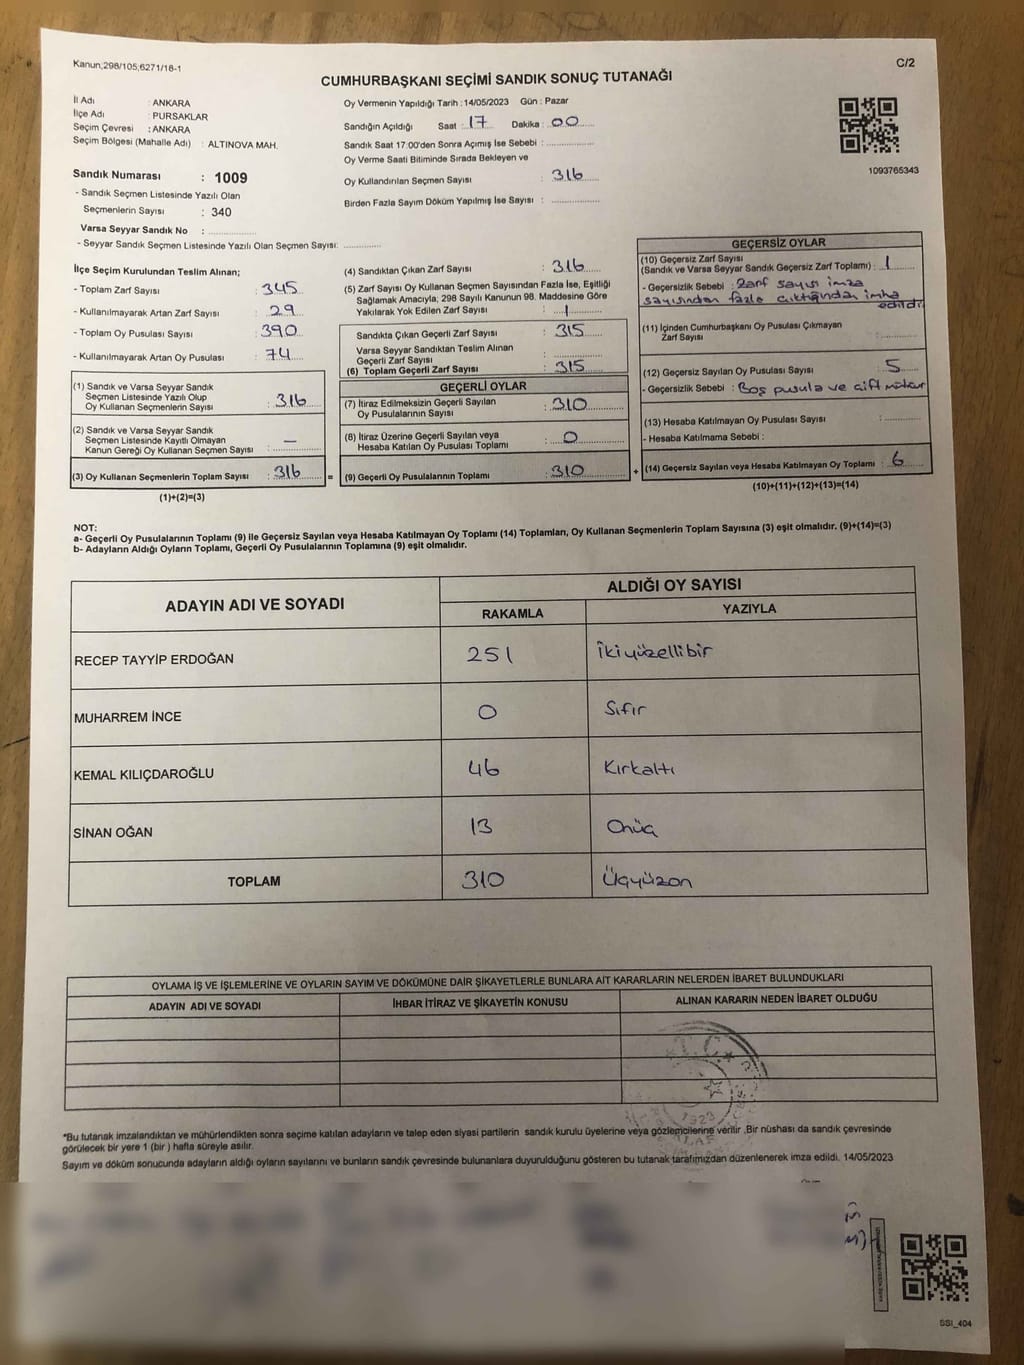 Kanun;298/105;6271/18-1
C/2
CUMHURBAŞKANI SEÇİMİ SANDIK SONUÇ TUTANAĞI
İl Adı : ANKARA
İlçe Adı : PURSAKLAR
Seçim Çevresi : ANKARA
Seçim Bölgesi (Mahalle Adı) : ALTINOVA MAH.
Sandık Numarası : 1009
- Sandık Seçmen Listesinde Yazılı Olan
Seçmenlerin Sayısı : 340
Varsa Seyyar Sandık No : ..............
- Seyyar Sandık Seçmen Listesinde Yazılı Olan Seçmen Sayısı: ............
Oy Vermenin Yapıldığı Tarih : 14/05/2023 Gün : Pazar
Sandığın Açıldığı Saat : 17 Dakika : 00
Sandık Saat 17:00'den Sonra Açımış İse Sebebi : ..............
Oy Verme Saati Bitiminde Sırada Bekleyen ve
Oy Kullandırılan Seçmen Sayısı : 316
Birden Fazla Sayım Döküm Yapılmış İse Sayısı : ..............
1093765343
İlçe Seçim Kurulundan Teslim Alınan;
- Toplam Zarf Sayısı : 345
- Kullanılmayarak Artan Zarf Sayısı : 29
- Toplam Oy Pusulası Sayısı : 390
- Kullanılmayarak Artan Oy Pusulası : 74
(1) Sandık ve Varsa Seyyar Sandık
Seçmen Listesinde Yazılı Olup
Oy Kullanan Seçmenlerin Sayısı : 316
(2) Sandık ve Varsa Seyyar Sandık
Seçmen Listesinde Kayıtlı Olmayan
Kanun Gereği Oy Kullanan Seçmen Sayısı : —
(3) Oy Kullanan Seçmenlerin Toplam Sayısı : 316
(1)+(2)=(3)
=
(4) Sandıktan Çıkan Zarf Sayısı : 316
(5) Zarf Sayısı Oy Kullanan Seçmen Sayısından Fazla İse, Eşitliği
Sağlamak Amacıyla, 298 Sayılı Kanunun 98. Maddesine Göre
Yakılarak Yok Edilen Zarf Sayısı : 1
Sandıkta Çıkan Geçerli Zarf Sayısı : 315
Varsa Seyyar Sandıktan Teslim Alınan
Geçerli Zarf Sayısı : ............
(6) Toplam Geçerli Zarf Sayısı : 315
GEÇERLİ OYLAR
(7) İtiraz Edilmeksizin Geçerli Sayılan
Oy Pusulalarının Sayısı : 310
(8) İtiraz Üzerine Geçerli Sayılan veya
Hesaba Katılan Oy Pusulası Toplamı : 0
(9) Geçerli Oy Pusulalarının Toplamı : 310
+
GEÇERSİZ OYLAR
(10) Geçersiz Zarf Sayısı
(Sandık ve Varsa Seyyar Sandık Geçersiz Zarf Toplamı) : 1
- Geçersizlik Sebebi : Zarf sayısı imza
sayısından fazla çıktığından imha
edildi
(11) İçinden Cumhurbaşkanı Oy Pusulası Çıkmayan
Zarf Sayısı : ............
(12) Geçersiz Sayılan Oy Pusulası Sayısı : 5
- Geçersizlik Sebebi : Boş pusula ve çift mühür
(13) Hesaba Katılmayan Oy Pusulası Sayısı : ............
- Hesaba Katılmama Sebebi :
(14) Geçersiz Sayılan veya Hesaba Katılmayan Oy Toplamı : 6
(10)+(11)+(12)+(13)=(14)
NOT:
a- Geçerli Oy Pusulalarının Toplamı (9) ile Geçersiz Sayılan veya Hesaba Katılmayan Oy Toplamı (14) Toplamları, Oy Kullanan Seçmenlerin Toplam Sayısına (3) eşit olmalıdır. (9)+(14)=(3)
b- Adayların Aldığı Oyların Toplamı, Geçerli Oy Pusulalarının Toplamına (9) eşit olmalıdır.
ADAYIN ADI VE SOYADI ALDIĞI OY SAYISI
RAKAMLA YAZIYLA
RECEP TAYYİP ERDOĞAN 251 İkiyüzellibir
MUHARREM İNCE 0 Sıfır
KEMAL KILIÇDAROĞLU 46 Kırkaltı
SİNAN OĞAN 13 Onüç
TOPLAM 310 Üçyüzon
OYLAMA İŞ VE İŞLEMLERİNE VE OYLARIN SAYIM VE DÖKÜMÜNE DAİR ŞİKAYETLERLE BUNLARA AİT KARARLARIN NELERDEN İBARET BULUNDUKLARI
ADAYIN ADI VE SOYADI İHBAR İTİRAZ VE ŞİKAYETİN KONUSU ALINAN KARARIN NEDEN İBARET OLDUĞU
T.C.
1923
*Bu tutanak imzalandıktan ve mühürlendikten sonra seçime katılan adayların ve talep eden siyasi partilerin sandık kurulu üyelerine veya gözlemcilerine verilir .Bir nüshası da sandık çevresinde
görülecek bir yere 1 (bir ) hafta süreyle asılır.
Sayım ve döküm sonucunda adayların aldığı oyların sayılarını ve bunların sandık çevresinde bulunanlara duyurulduğunu gösteren bu tutanak tarafımızdan düzenlenerek imza edildi. 14/05/2023
SSI_404